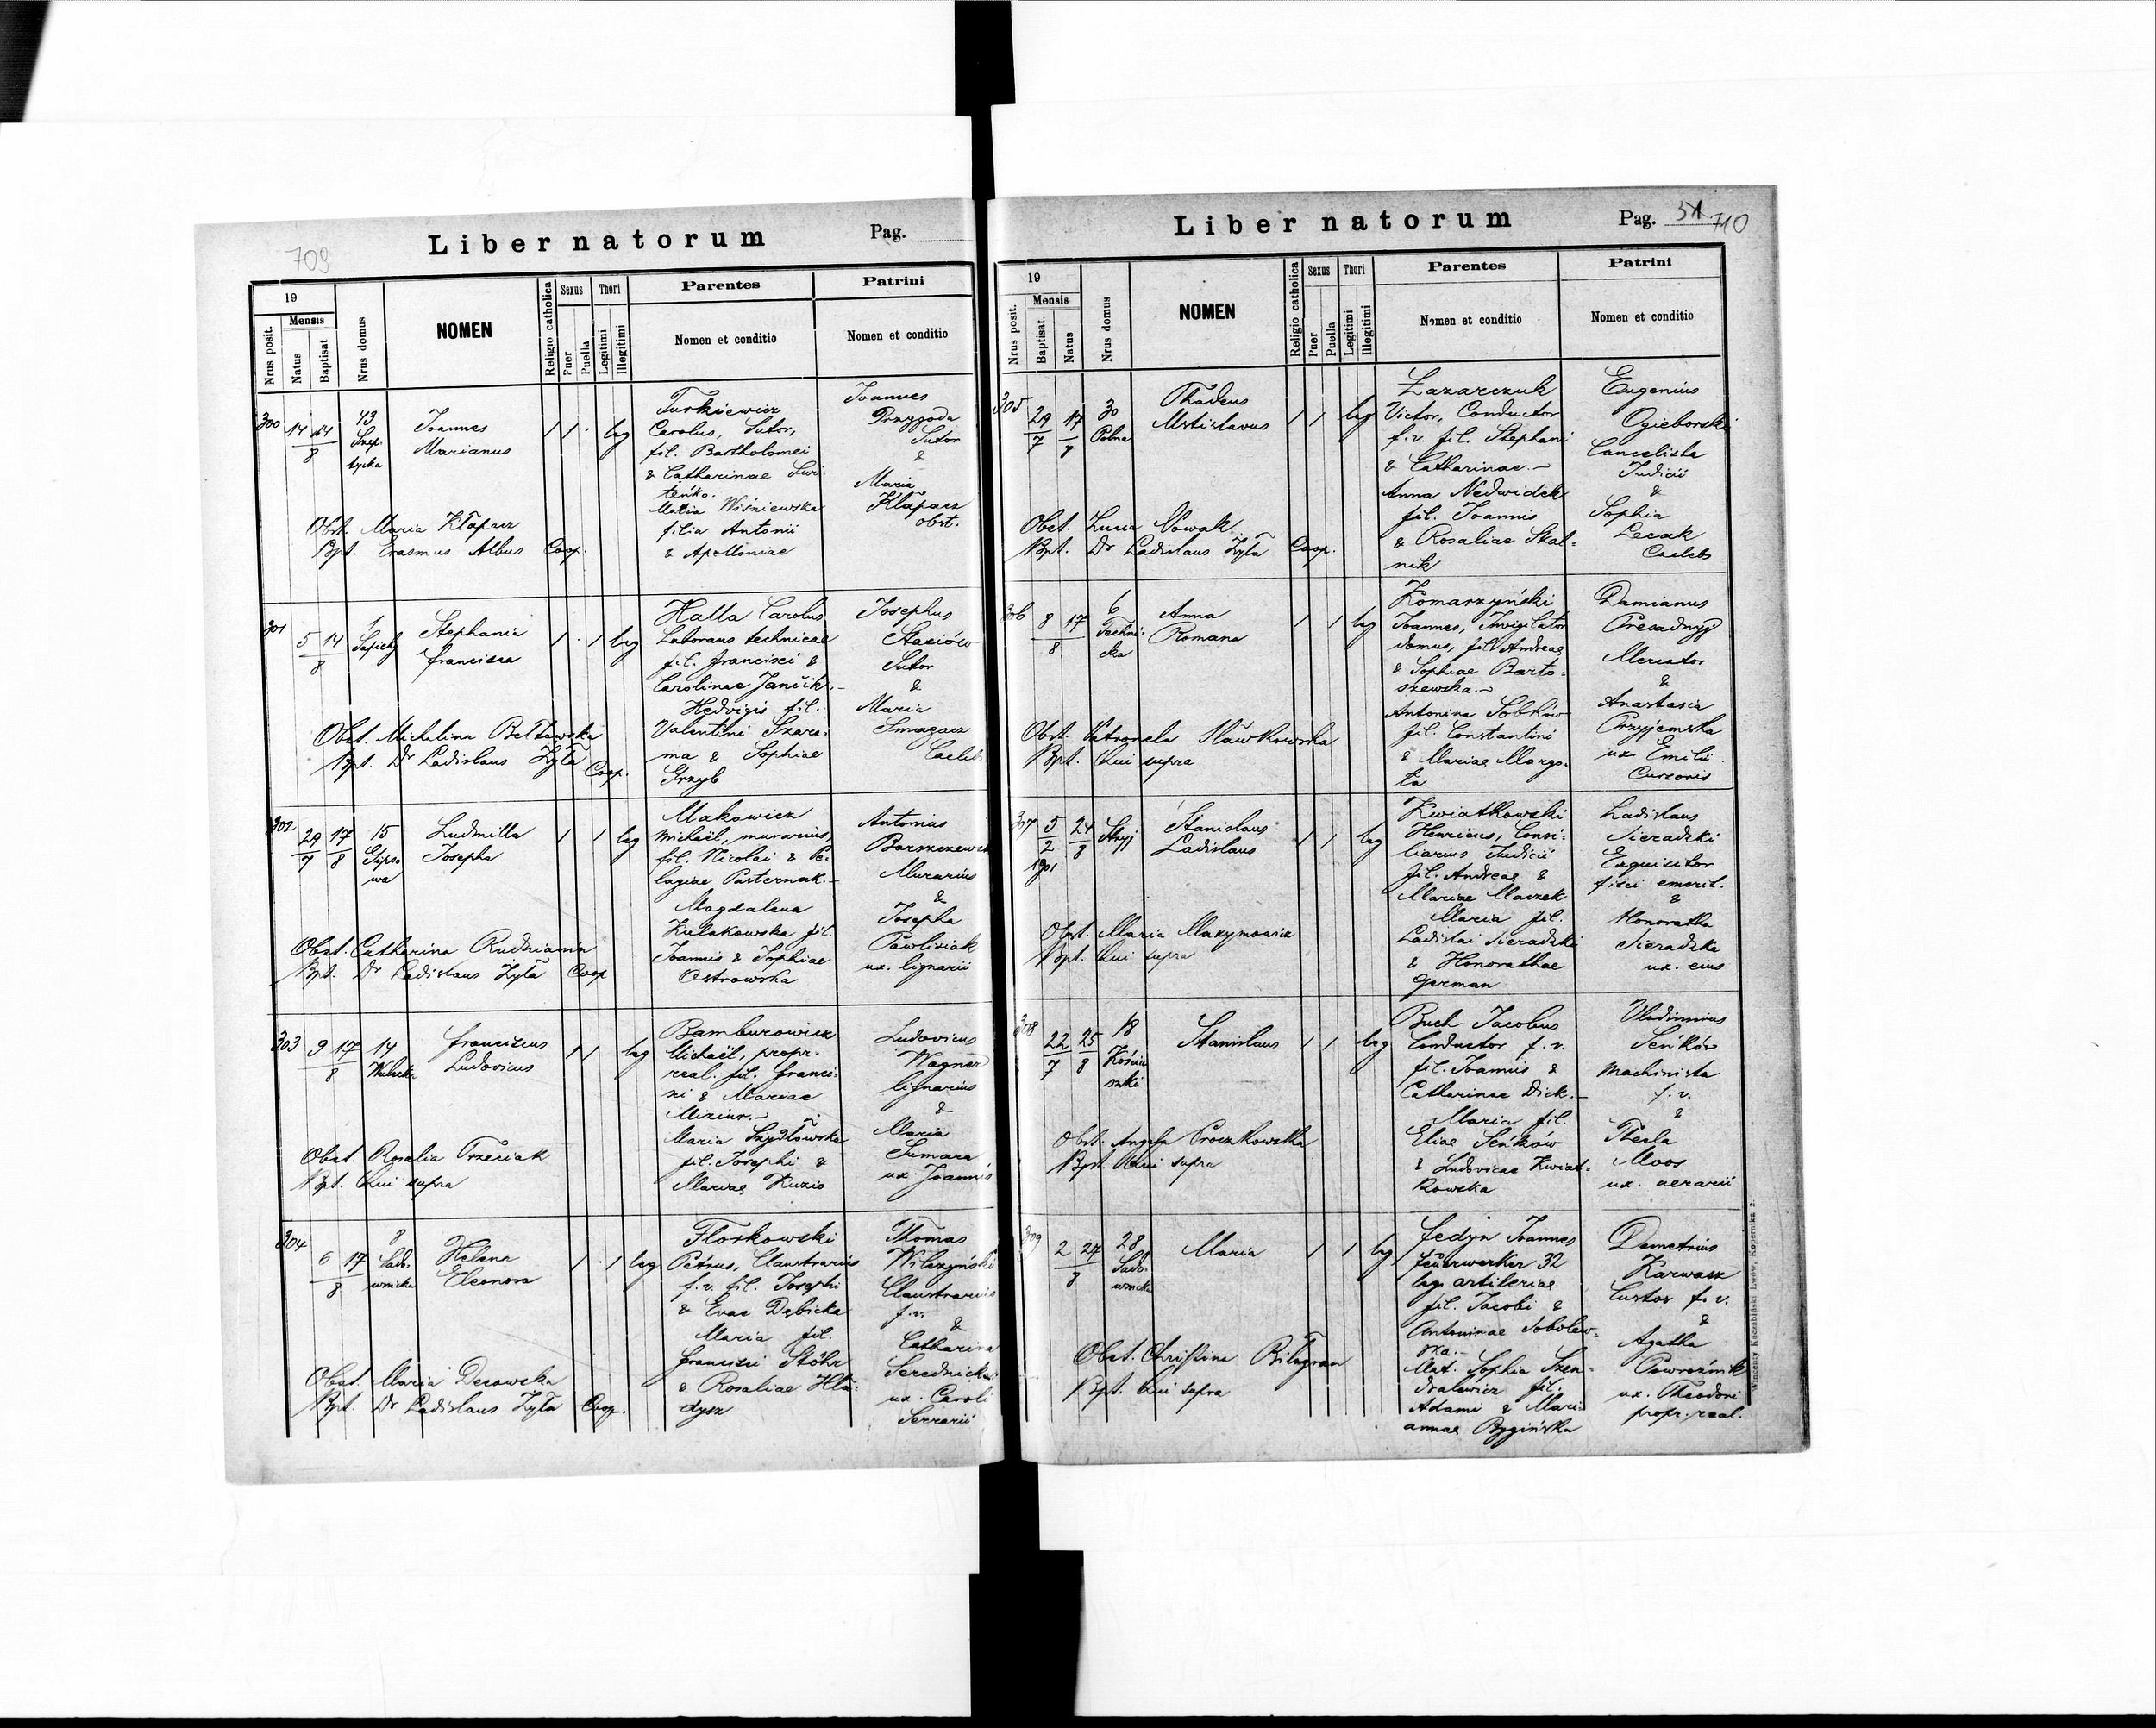 709
Liber natorum
Pag.
19
Mensis
Nrus posit.
Natus
Baptisat
Nrus domus
NOMEN
Religio catholica
Sexus
Puer
Puella
Thori
Legitimi
Illegitimi
Parentes
Nomen et conditio
Patrini
Nomen et conditio
300
14 14
8
43
Szep-
tycka
Joannes
Marianus
1 1 · leg
Turkiewicz
Carolus, Sutor,
fil. Bartholomei
& Catharinae Swi-
teńko.
Maria Wiśniewska
filia Antonii
& Apolloniae
Joannes
Przygoda
Sutor
&
Maria
Kłapacz
obst.
Obst. Maria Kłapacz
Bpt. Erasmus Albus Coop.
301
5 14
8
1
Sapiehy
Stephania
Francisca
1 · 1 leg
Halla Carolus
Laborans technicae
fil. Francisci &
Carolinae Janičik.-
Hedvigis fil.
Valentini Szara-
ma & Sophiae
Grzyb
Josephus
Stasiów
Sutor
&
Maria
Smagacz
Caelebs
Obst. Michalina Bełtowska
Bpt. Dr Ladislaus Żyła
Coop.
302
29 17
7 8
15
Gipso-
wa
Ludmilla
Josepha
1 1 leg
Makowicz
Michaël, murarius,
fil. Nicolai & Pe-
lagiae Pasternak.-
Magdalena
Kulakowska fil.
Joannis & Sophiae
Ostrowska
Antonius
Barszczewski
Murarius
&
Josepha
Pawlisiak
ux. lignarii
Obst. Catharina Rudnianin
Bpt. Dr Ladislaus Żyła Coop
303
9 17
8
14
Wulecka
Franciscus
Ludovicus
1 1 leg
Bamburowicz
Michaël, propr.
real. fil. Franci-
sci & Mariae
Miziur.-
Maria Szydłowska
fil. Josephi &
Mariae Kuzio
Ludovicus
Wagner
lignarius
&
Maria
Sumara
ux Joannis
Obst. Rosalia Trzeciak
Bpt. Qui supra
304
6 17
8
8
Sado-
wnicka
Helena
Eleonora
1 · 1 leg
Florkowski
Petrus, Claustrarius
f.v. fil. Josephi
& Evae Dębicka
Maria fil.
Francisci Stöhr
& Rosaliae Hła-
dysz
Thomas
Wilczyński
Claustrarius
f.v.
&
Catharina
Serednicka
ux. Caroli
Serrarii
Obst. Maria Decowska
Bpt. Dr Ladislaus Żyła Coop.
Liber natorum
Pag. 51
710
19
Mensis
Nrus posit.
Baptisat.
Natus
Nrus domus
NOMEN
Religio catholica
Sexus
Puer
Puella
Thori
Legitimi
Illegitimi
Parentes
Nomen et conditio
Patrini
Nomen et conditio
305
29 17
7 8
30
Polna
Thadeus
Mstislavus
1 1 leg
Łazarczuk
Victor, Conductor
f.v. fil. Stephani
& Catharinae.-
Anna Nedwidek
fil. Joannis
& Rosaliae Skal-
nik
Eugenius
Ogieborski
Cancelista
Judicii
&
Sophia
Lecak
Caelebs
Obst. Lucia Nowak
Bpt. Dr Ladislaus Żyła Coop.
306
8 17
8
6
Techni-
cka
Anna
Romana
1 1 leg
Komarzyński
Joannes, Invigilator
domus, fil Andreae
& Sophiae Barto-
szewska.-
Antonina Sobków
fil. Constantini
& Mariae Margo-
ta
Damianus
Presadnyj
Mercator
&
Anastasia
Przyjemska
ux Emilii
Cursoris
Obst. Petronela Sławkowska
Bpt. Qui supra
307
5 24
2 8
1901
Stryj
Stanislaus
Ladislaus
1 1 leg
Kwiatkowski
Henricus, Consi-
liarius Judicii
fil. Andreae &
Mariae Maczek
Maria fil.
Ladislai Sieradzki
& Honorathae
German
Ladislaus
Sieradzki
Exquisitor
fisci emerit.
&
Honoratha
Sieradzka
ux. eius
Obst. Maria Maxymowicz
Bpt. Qui supra
308
22 25
7 8
18
Kościu
szki
Stanislaus
1 1 leg
Buch Jacobus
Conductor f.v.
fil. Joannis &
Catharinae Dick.-
Maria fil.
Eliae Seńków
& Ludovicae Kwiat-
kowska
Vladimirus
Seńków
Machinista
f.v.
&
Thecla
Moos
ux. aerarii
Obst. Angela Proczkowska
Bpt. Qui supra
309
2 27
8
28
Sado-
wnicka
Maria
1 1 leg
Fedyn Joannes
Feuerwerker 32
leg. artileriae
fil. Jacobi &
Antoninae Sobolew-
ska.-
Mat. Sophia Szen-
dralewicz fil.
Adami & Mari-
annae Bygińska
Demetrius
Karwacz
Custos f.v.
&
Agatha
Powroźnik
ux. Theodori
propr. real.
Obst. Christina Bilogran
Bpt. Qui supra
Wincenty Kuczabiński Lwów, Kopernika 2.